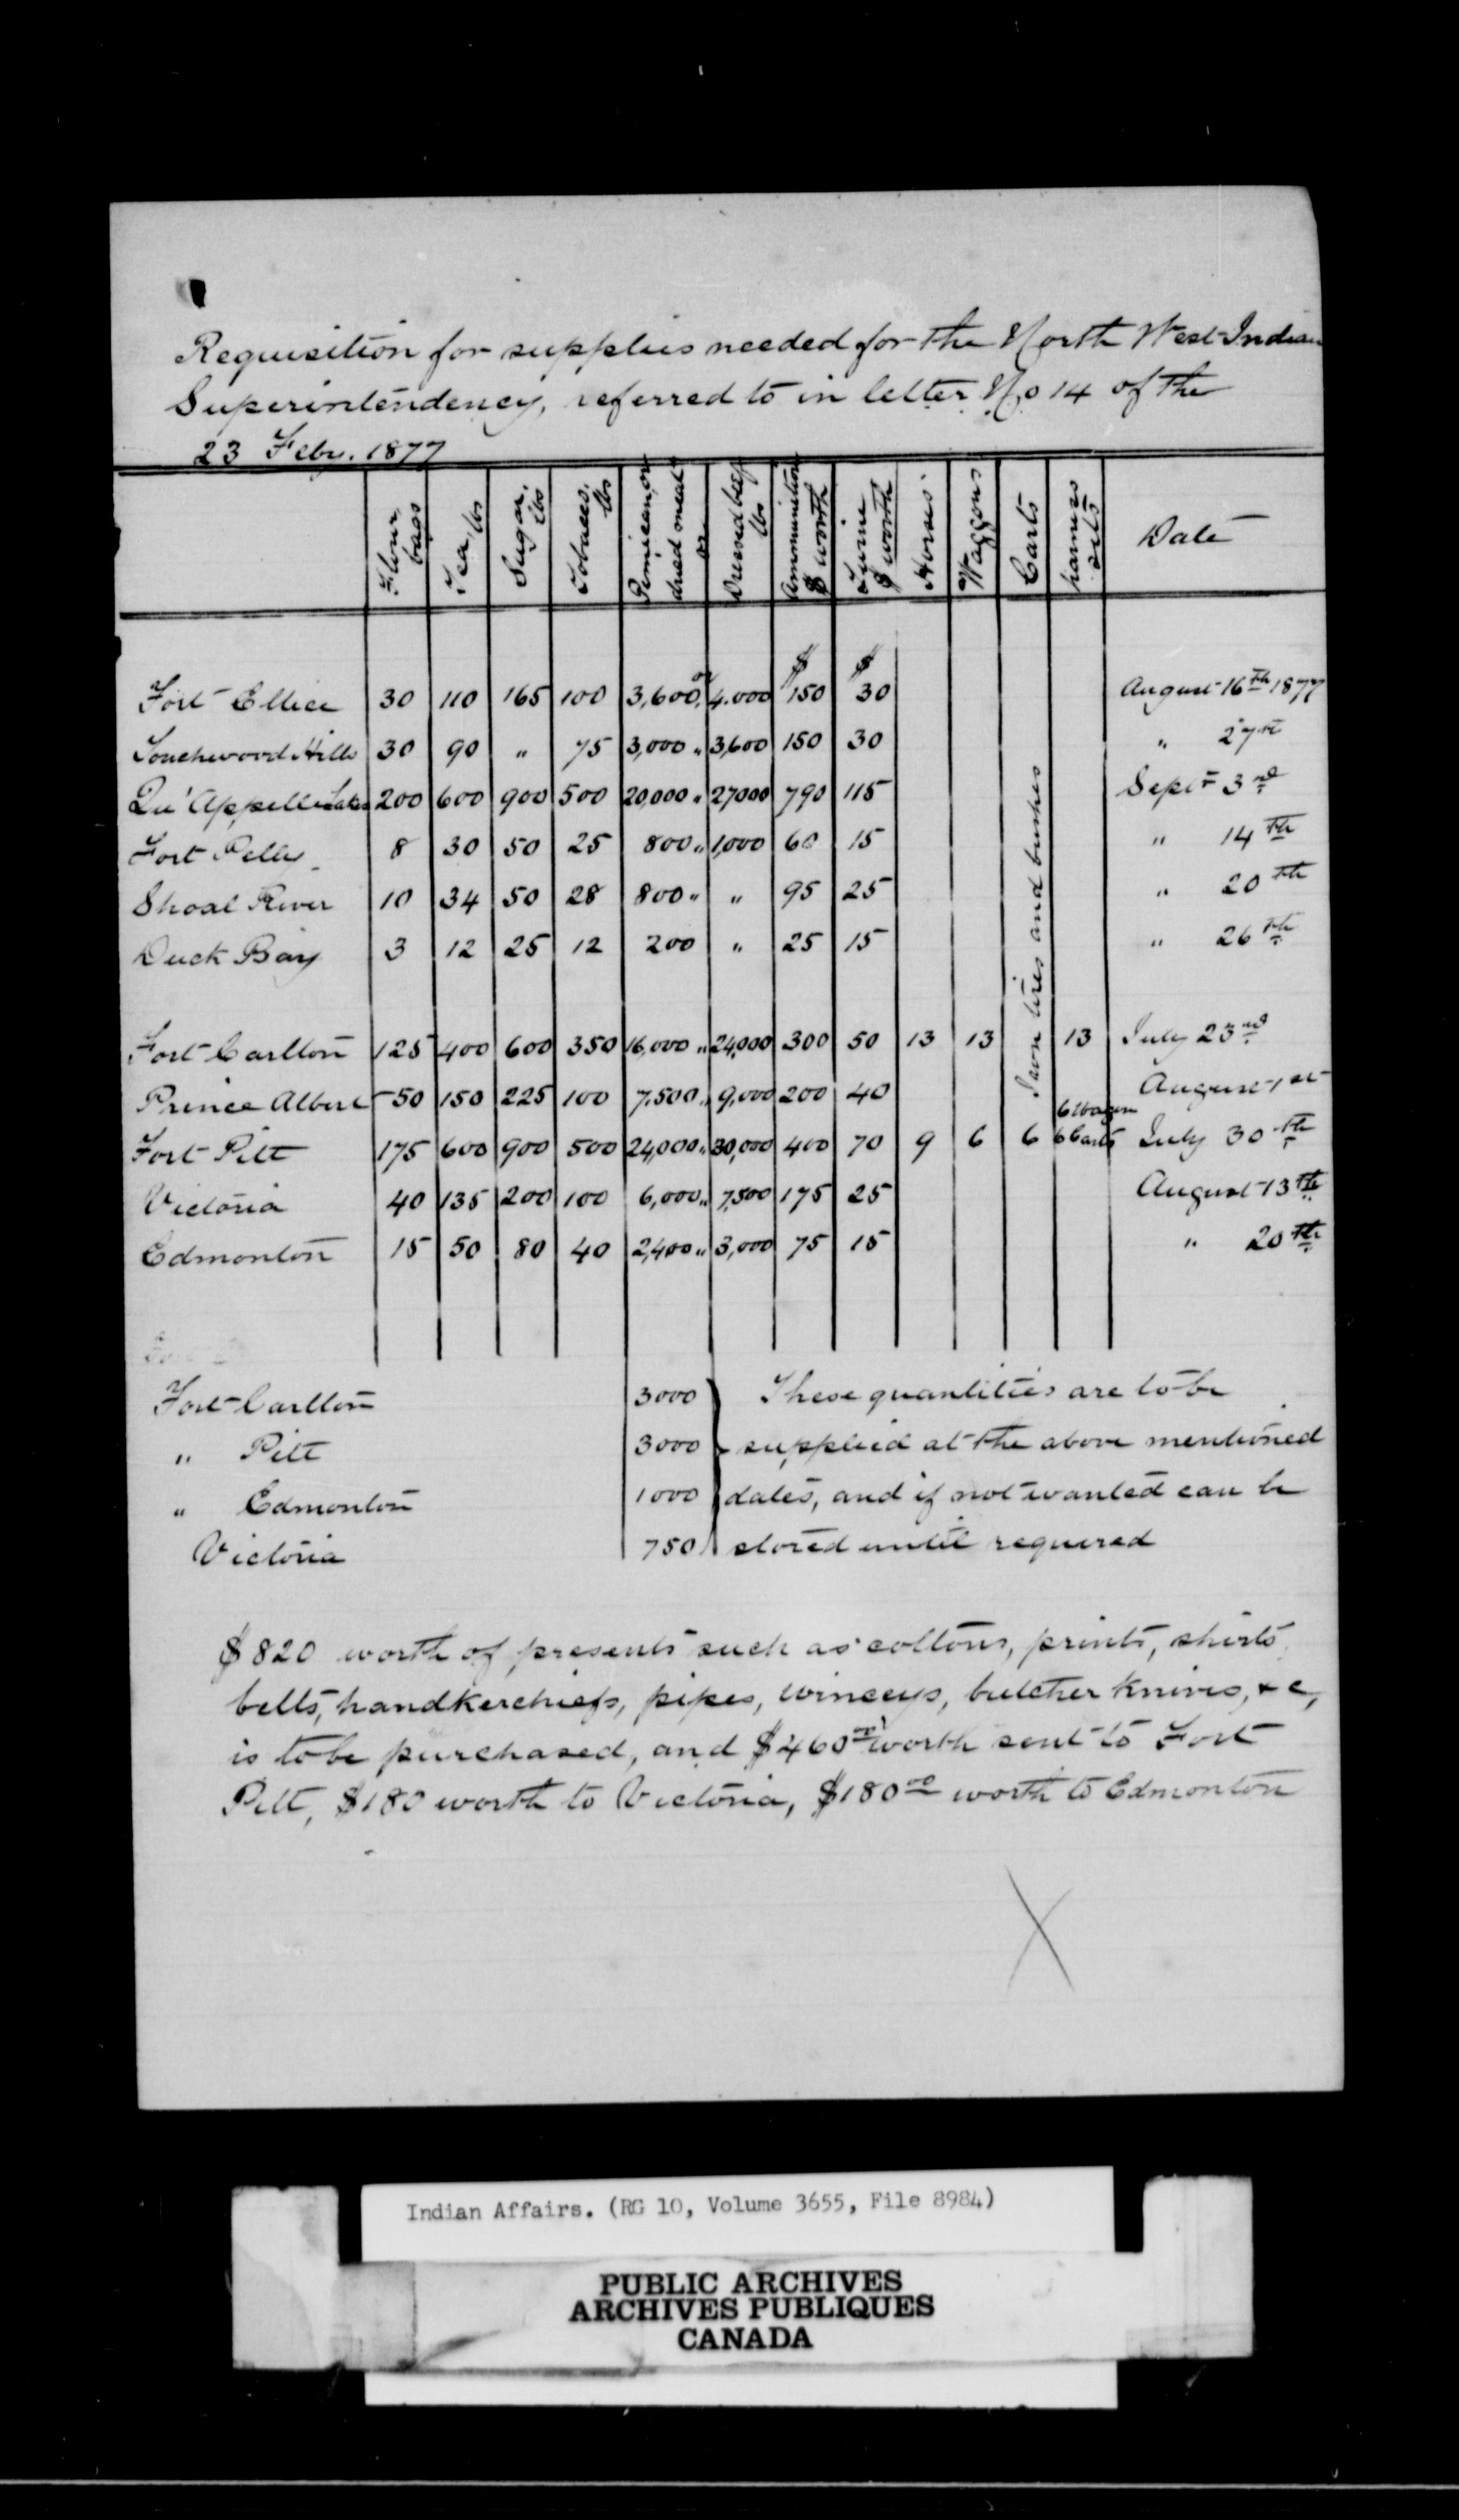 Requisition for supplies needed for the North West Indian
Superintendency, referred to in letter No 14 of the
23 Feby. 1877
Flour bags | Tea, lbs | Sugar. lbs | Tobacco. lbs | Pemican, or dried meat or | Dressed beef lbs | Ammunition $ worth | Twine $ worth | Horses | Waggons | Carts | harness sets | Date
$ $
Fort Ellice 30 110 165 100 3,600 or 4.000 150 30 August 16th 1877
Touchwood Hills 30 90 " 75 3,000 " 3,600 150 30 " 27th
Qu'Appelle Lakes 200 600 900 500 20,000 " 27000 790 115 Sept 3rd
Fort Pelly 8 30 50 25 800 " 1,000 60 15 " 14th
Shoal River 10 34 50 28 800 " " 95 25 " 20th
Duck Bay 3 12 25 12 200 " 25 15 " 26th
Iron tires and bushes
Fort Carlton 125 400 600 350 16,000 " 24,000 300 50 13 13 13 July 23rd
Prince Albert 50 150 225 100 7,500 " 9,000 200 40 August 1st
Fort Pitt 175 600 900 500 24,000 " 30,000 400 70 9 6 6 6 Wagon 6 Carts July 30th
Victoria 40 135 200 100 6,000 " 7,500 175 25 August 13th
Edmonton 15 50 80 40 2,400 " 3,000 75 15 " 20th
Fort Carlton 3000 These quantities are to be
" Pitt 3000 supplied at the above mentioned
" Edmonton 1000 dates, and if not wanted can be
Victoria 750 stored until required
$820 worth of presents such as cottons, prints, shirts,
belts, handkerchiefs, pipes, winceys, butcher knives, &c,
is to be purchased, and $460 00 worth sent to Fort
Pitt, $180 worth to Victoria, $180 00 worth to Edmonton
Indian Affairs. (RG 10, Volume 3655, File 8984)
PUBLIC ARCHIVES
ARCHIVES PUBLIQUES
CANADA